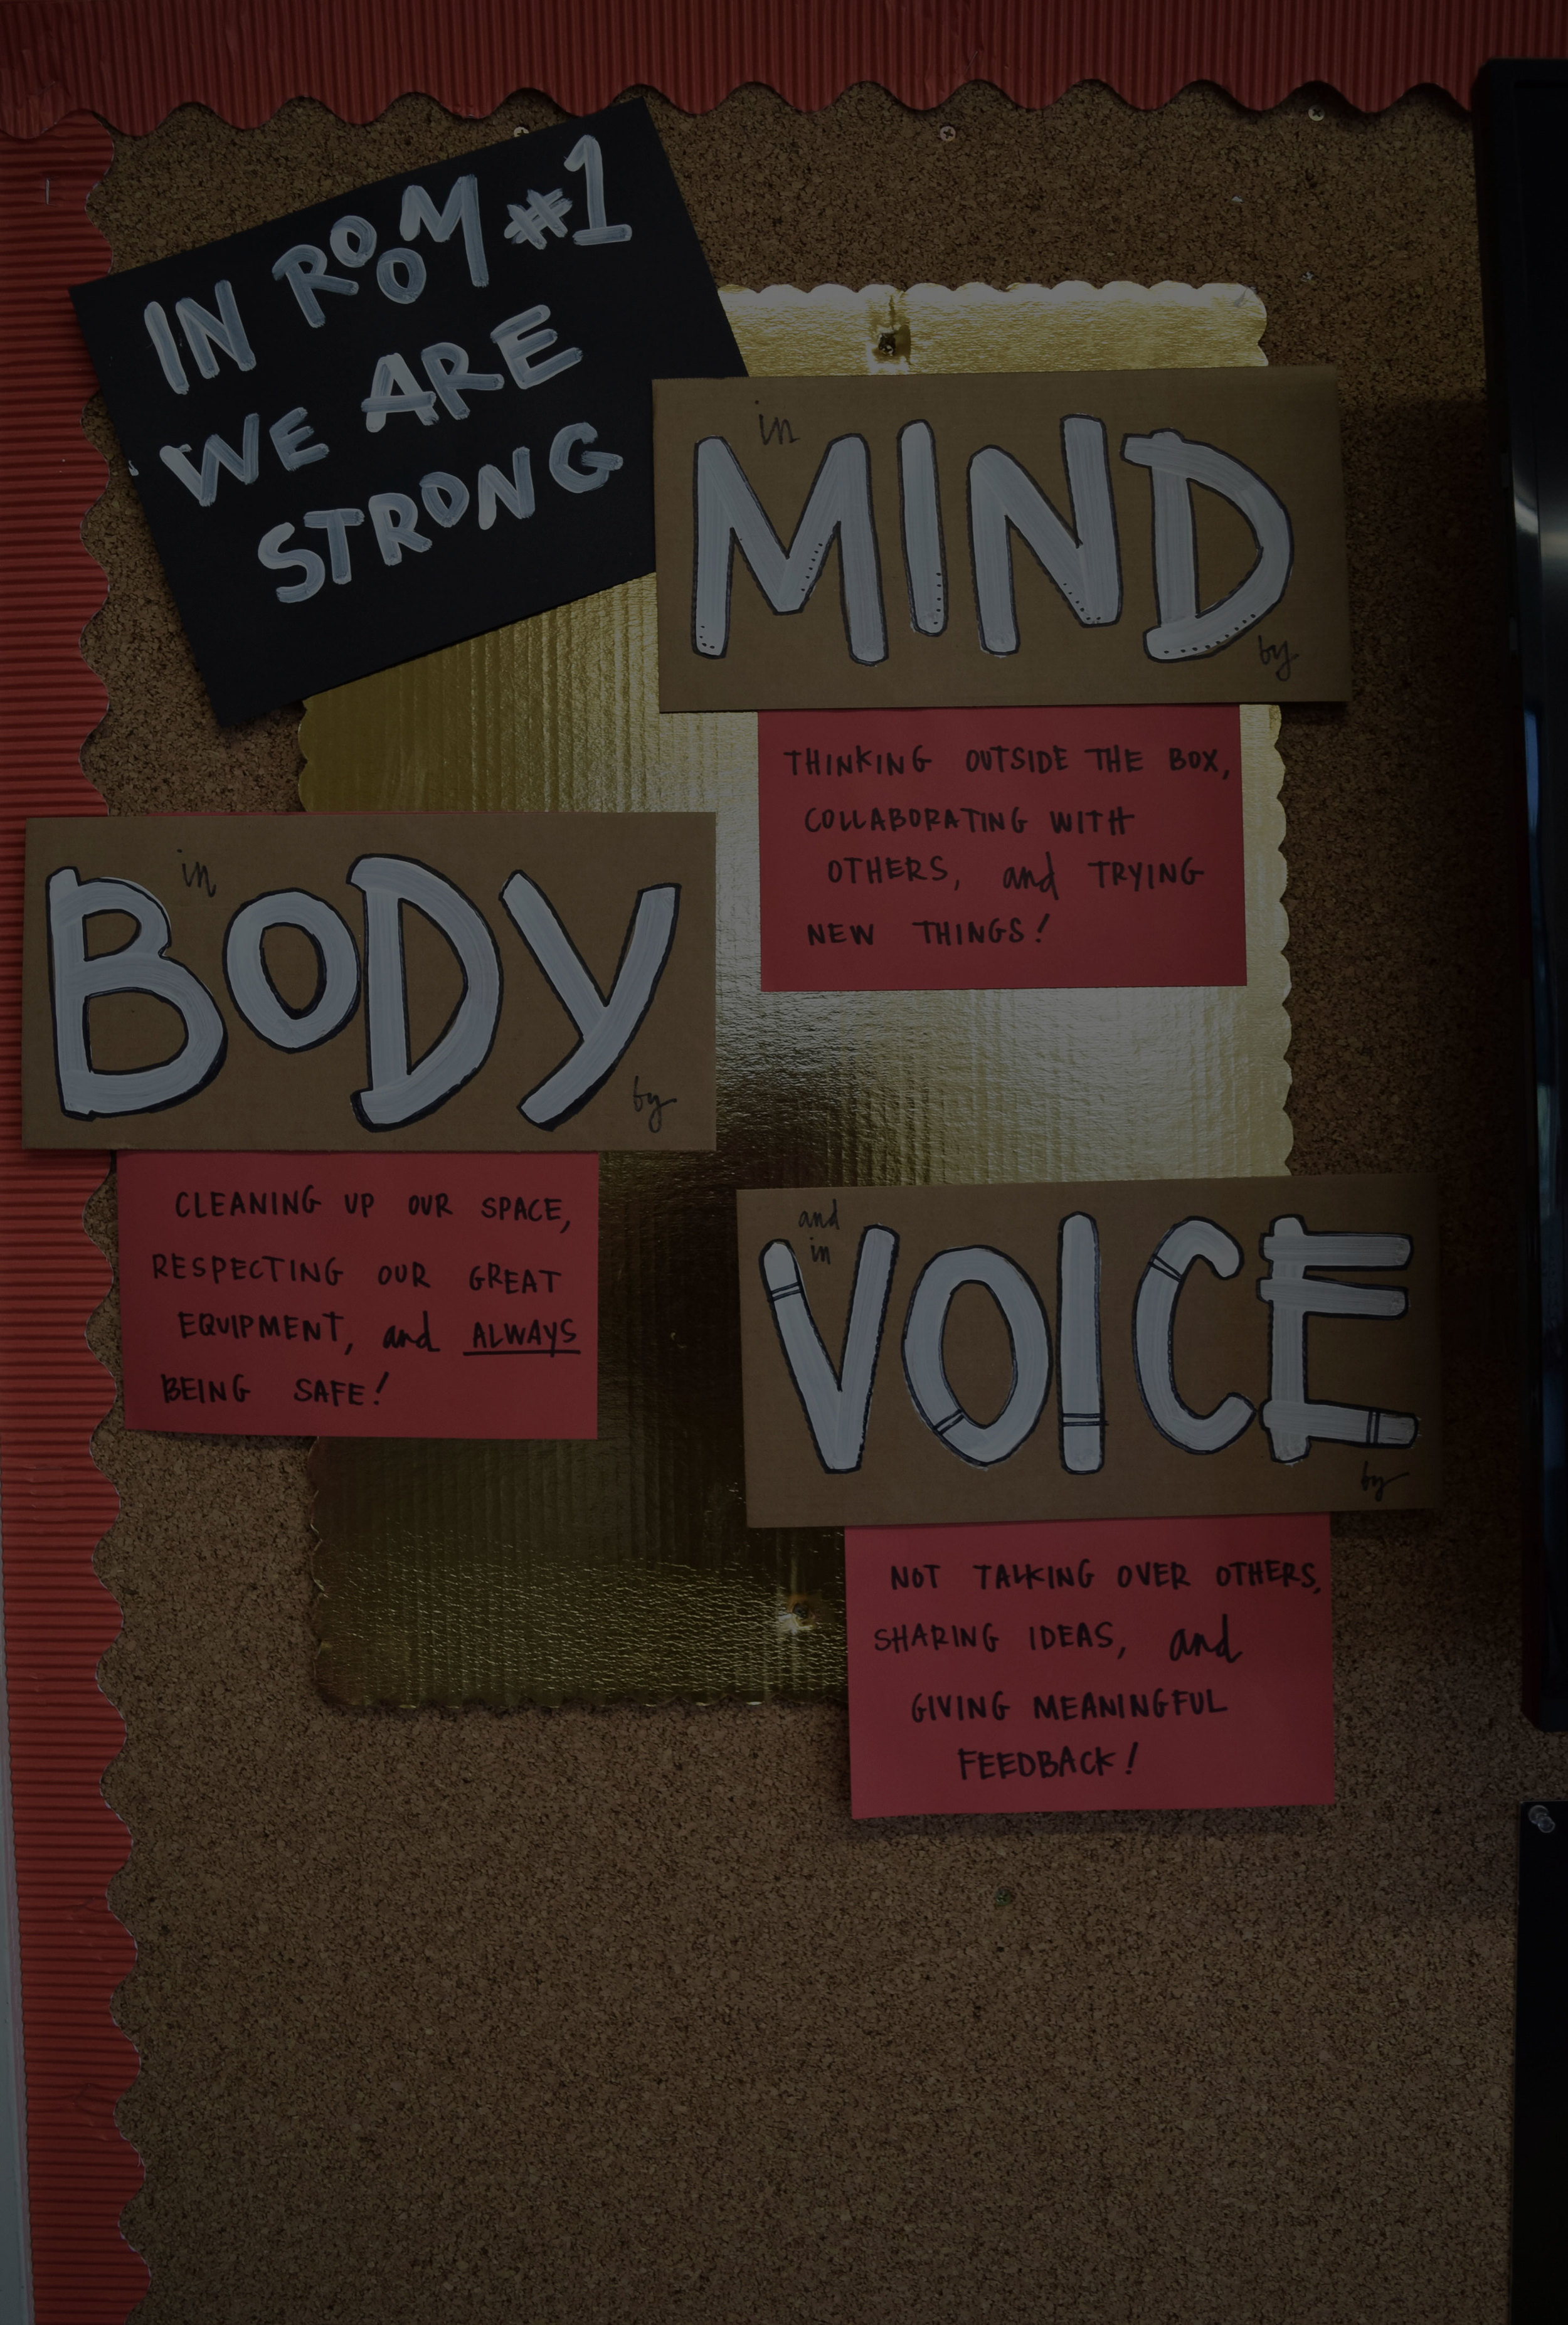 IN ROOM #1
WE ARE
STRONG
in
MIND
by
THINKING OUTSIDE THE BOX,
COLLABORATING WITH
OTHERS, and TRYING
NEW THINGS!
in
BODY
by
CLEANING UP OUR SPACE,
RESPECTING OUR GREAT
EQUIPMENT, and ALWAYS
BEING SAFE!
and
in
VOICE
by
NOT TALKING OVER OTHERS,
SHARING IDEAS, and
GIVING MEANINGFUL
FEEDBACK!